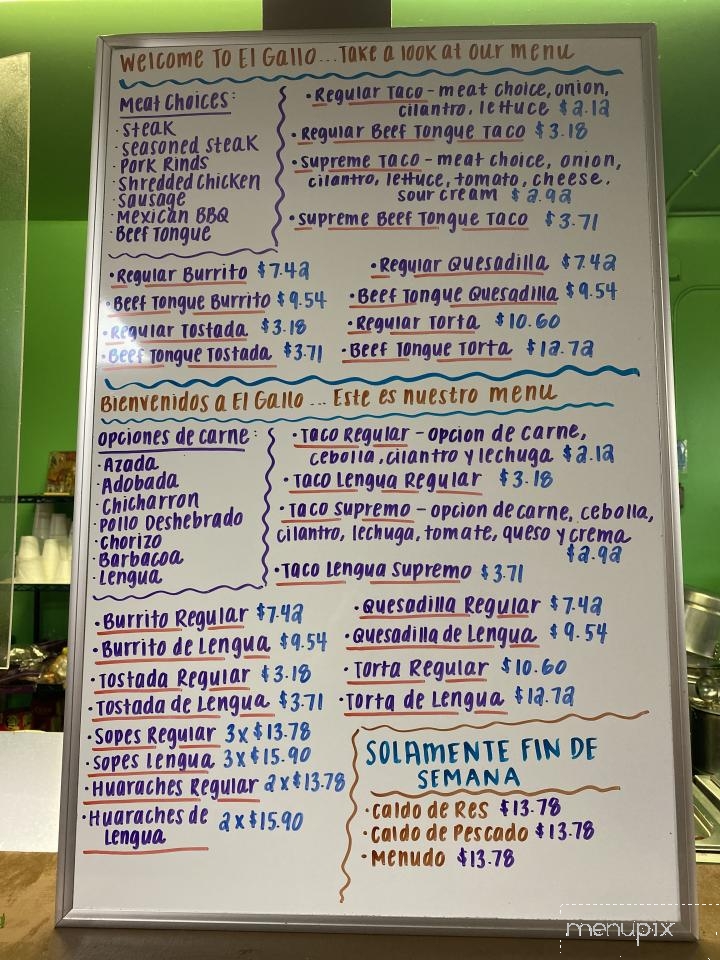 Welcome To El Gallo... Take a look at our menu
Meat Choices:
· Steak
· Seasoned Steak
· Pork Rinds
· Shredded Chicken
· Sausage
· Mexican BBQ
· Beef Tongue
• Regular Taco - meat choice, onion,
cilantro, lettuce $2.12
• Regular Beef Tongue Taco $3.18
• Supreme Taco - meat choice, onion,
cilantro, lettuce, tomato, cheese,
sour cream $2.92
• Supreme Beef Tongue Taco $3.71
• Regular Burrito $7.42
• Beef Tongue Burrito $9.54
• Regular Tostada $3.18
• Beef Tongue Tostada $3.71
• Regular Quesadilla $7.42
• Beef Tongue Quesadilla $9.54
• Regular Torta $10.60
• Beef Tongue Torta $12.72
Bienvenidos a El Gallo ... Este es nuestro menu
Opciones de carne:
· Azada
· Adobada
· Chicharron
· Pollo Deshebrado
· Chorizo
· Barbacoa
· Lengua
• Taco Regular - opcion de carne,
cebolla, cilantro y lechuga $2.12
• Taco Lengua Regular $3.18
• Taco Supremo - opcion de carne, cebolla,
cilantro, lechuga, tomate, queso y crema
$2.92
• Taco Lengua Supremo $3.71
• Burrito Regular $7.42
• Burrito de Lengua $9.54
• Tostada Regular $3.18
• Tostada de Lengua $3.71
• Sopes Regular 3x$13.78
• Sopes Lengua 3x$15.90
• Huaraches Regular 2x$13.78
• Huaraches de
Lengua 2x$15.90
• Quesadilla Regular $7.42
• Quesadilla de Lengua $9.54
• Torta Regular $10.60
• Torta de Lengua $12.72
SOLAMENTE FIN DE
SEMANA
• Caldo de Res $13.78
• Caldo de Pescado $13.78
• Menudo $13.78
menupix